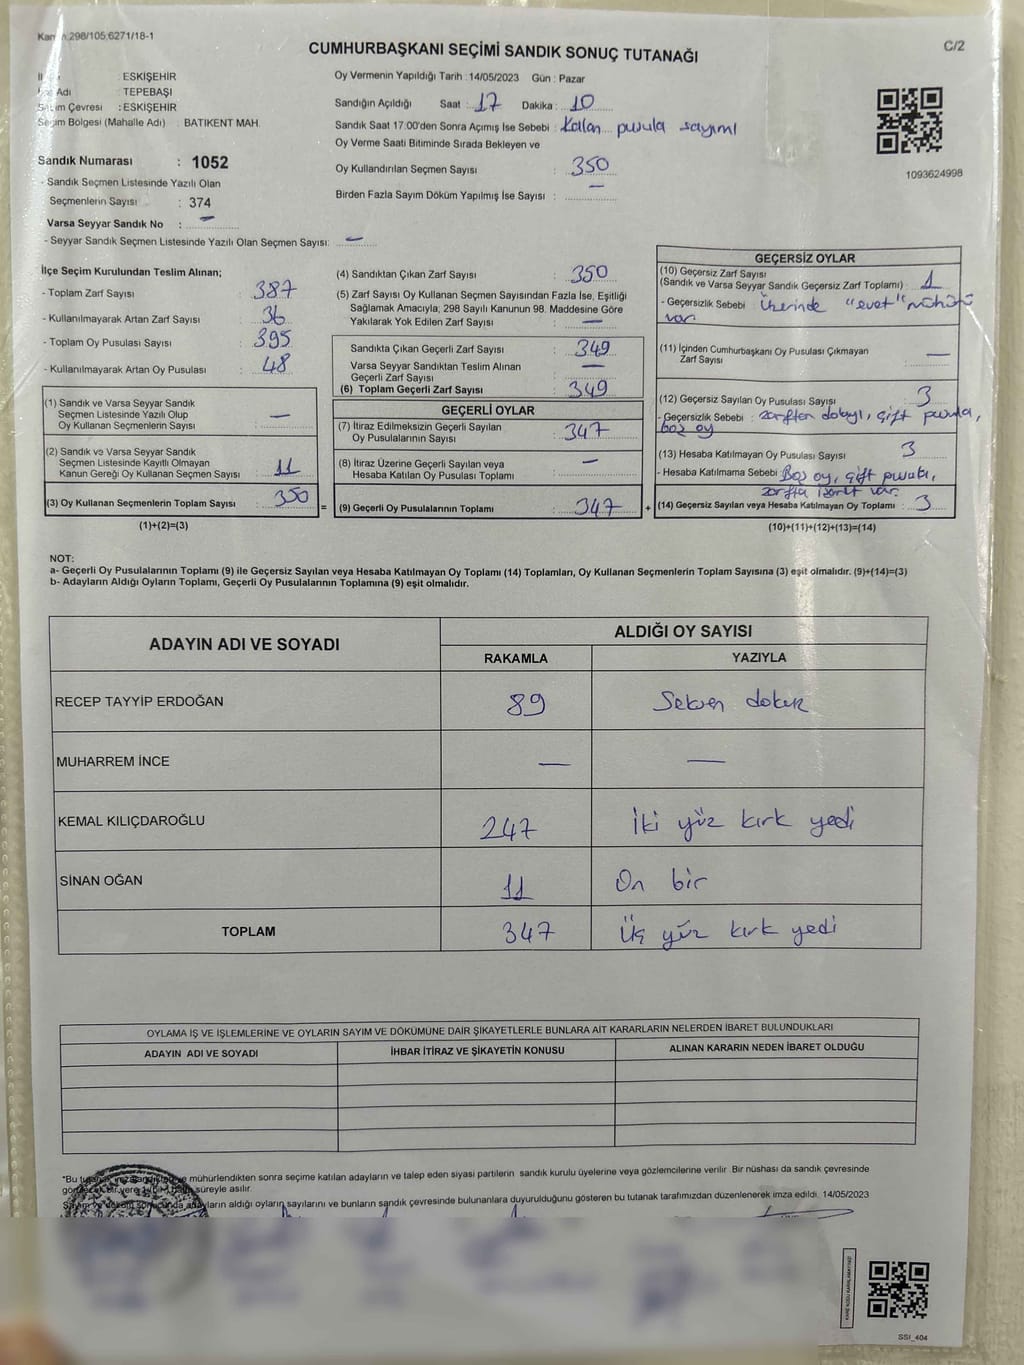 Kanun 298/105,6271/18-1
CUMHURBAŞKANI SEÇİMİ SANDIK SONUÇ TUTANAĞI
C/2
: ESKİŞEHİR
Adı : TEPEBAŞI
Seçim Çevresi : ESKİŞEHİR
Seçim Bölgesi (Mahalle Adı) : BATIKENT MAH.
Sandık Numarası : 1052
- Sandık Seçmen Listesinde Yazılı Olan
Seçmenlerin Sayısı : 374
Varsa Seyyar Sandık No : —
- Seyyar Sandık Seçmen Listesinde Yazılı Olan Seçmen Sayısı: —
Oy Vermenin Yapıldığı Tarih : 14/05/2023 Gün : Pazar
Sandığın Açıldığı Saat : 17 Dakika : 10
Sandık Saat 17:00'den Sonra Açımış İse Sebebi : Kalan pusula sayımı
Oy Verme Saati Bitiminde Sırada Bekleyen ve
Oy Kullandırılan Seçmen Sayısı : 350
Birden Fazla Sayım Döküm Yapılmış İse Sayısı : —
1093624998
İlçe Seçim Kurulundan Teslim Alınan;
- Toplam Zarf Sayısı : 387
- Kullanılmayarak Artan Zarf Sayısı : 36
- Toplam Oy Pusulası Sayısı : 395
- Kullanılmayarak Artan Oy Pusulası : 48
(1) Sandık ve Varsa Seyyar Sandık
Seçmen Listesinde Yazılı Olup
Oy Kullanan Seçmenlerin Sayısı : —
(2) Sandık ve Varsa Seyyar Sandık
Seçmen Listesinde Kayıtlı Olmayan
Kanun Gereği Oy Kullanan Seçmen Sayısı : 11
(3) Oy Kullanan Seçmenlerin Toplam Sayısı : 350
(1)+(2)=(3)
(4) Sandıktan Çıkan Zarf Sayısı : 350
(5) Zarf Sayısı Oy Kullanan Seçmen Sayısından Fazla İse, Eşitliği
Sağlamak Amacıyla, 298 Sayılı Kanunun 98. Maddesine Göre
Yakılarak Yok Edilen Zarf Sayısı : —
Sandıkta Çıkan Geçerli Zarf Sayısı : 349
Varsa Seyyar Sandıktan Teslim Alınan
Geçerli Zarf Sayısı : —
(6) Toplam Geçerli Zarf Sayısı : 349
GEÇERLİ OYLAR
(7) İtiraz Edilmeksizin Geçerli Sayılan
Oy Pusulalarının Sayısı : 347
(8) İtiraz Üzerine Geçerli Sayılan veya
Hesaba Katılan Oy Pusulaları Toplamı : —
= (9) Geçerli Oy Pusulalarının Toplamı : 347 +
GEÇERSİZ OYLAR
(10) Geçersiz Zarf Sayısı
(Sandık ve Varsa Seyyar Sandık Geçersiz Zarf Toplamı) : 1
- Geçersizlik Sebebi : Üzerinde "evet" mührü
var
(11) İçinden Cumhurbaşkanı Oy Pusulası Çıkmayan
Zarf Sayısı : —
(12) Geçersiz Sayılan Oy Pusulası Sayısı : 3
- Geçersizlik Sebebi : zarftan dolayı, çift pusula,
boş oy
(13) Hesaba Katılmayan Oy Pusulası Sayısı : 3
- Hesaba Katılmama Sebebi : Boş oy, çift pusula,
zarfta işaret var.
(14) Geçersiz Sayılan veya Hesaba Katılmayan Oy Toplamı : 3
(10)+(11)+(12)+(13)=(14)
NOT:
a- Geçerli Oy Pusulalarının Toplamı (9) ile Geçersiz Sayılan veya Hesaba Katılmayan Oy Toplamı (14) Toplamları, Oy Kullanan Seçmenlerin Toplam Sayısına (3) eşit olmalıdır. (9)+(14)=(3)
b- Adayların Aldığı Oyların Toplamı, Geçerli Oy Pusulalarının Toplamına (9) eşit olmalıdır.
ADAYIN ADI VE SOYADI
ALDIĞI OY SAYISI
RAKAMLA YAZIYLA
RECEP TAYYİP ERDOĞAN 89 Seksen dokuz
MUHARREM İNCE — —
KEMAL KILIÇDAROĞLU 247 İki yüz kırk yedi
SİNAN OĞAN 11 On bir
TOPLAM 347 Üç yüz kırk yedi
OYLAMA İŞ VE İŞLEMLERİNE VE OYLARIN SAYIM VE DÖKÜMÜNE DAİR ŞİKAYETLERLE BUNLARA AİT KARARLARIN NELERDEN İBARET BULUNDUKLARI
ADAYIN ADI VE SOYADI İHBAR İTİRAZ VE ŞİKAYETİN KONUSU ALINAN KARARIN NEDEN İBARET OLDUĞU
*Bu tutanak imzalandıktan ve mühürlendikten sonra seçime katılan adayların ve talep eden siyasi partilerin sandık kurulu üyelerine veya gözlemcilerine verilir. Bir nüshası da sandık çevresinde
süreyle asılır.
Sayım ve döküm sonucunda adayların aldığı oyların sayılarını ve bunların sandık çevresinde bulunanlara duyurulduğunu gösteren bu tutanak tarafımızdan düzenlenerek imza edildi. 14/05/2023
KARE KODU KARALAMAYINIZ!
SSI_404